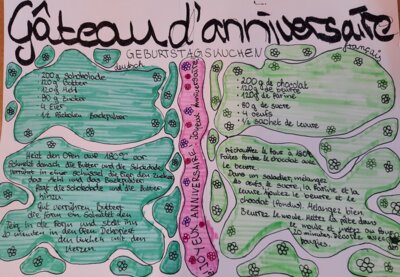 Gâteau d'anniversaire
GEBURTSTAGSKUCHEN
français
200g Schokolade
120g Butter
120g Mehl
80g Zucker
4 Eier
1/2 Päckchen Backpulver
Heizt den Ofen auf 180°C vor
Schmelzt danach die Butter und die Schokolade
in einer Schüssel die Eier den Zucker
das Mehl und das Backpulver
fügt die Schokolade und die Butter
hinzu.
Gut verrühren, Buttert
die Form ein Schüttet den
Teig in die Form und stellt ihn
20 minuten in den Ofen Dekoriert
den Kuchen mit den
Kerzen
JOYEUX ANNIVERSAIRE Joyeux Anniversaire
200 g de chocolat
120g de beurre
120g de farine
80 g de sucre
4 oeufs
1/2 sachet de levure
Préchauffez le four à 180°C
Faites fondre le chocolat avec
le beurre
Dans un saladier, mélangez
les oeufs le sucre, la farine et la
levure Ajoutez le beurre et le
chocolat (fondus). Mélangez bien.
Beurrez le moule. Mettez la pâte dans
le moule et mettez au four
20 minutes Décorez avec
bougies.